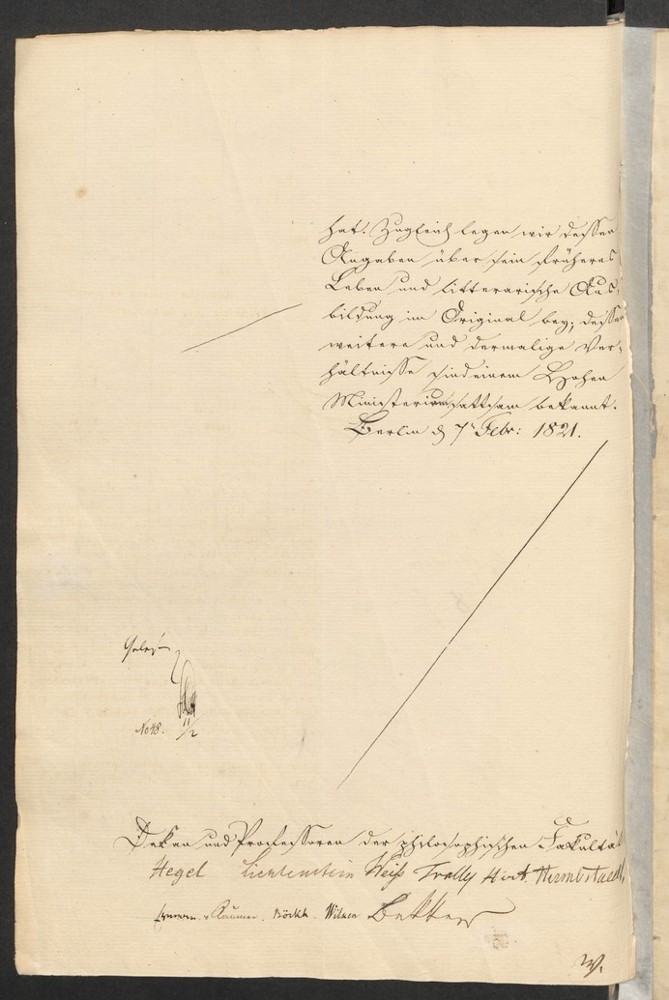 hat. Zugleich legen wir dessen
Angaben über sein früheres
Leben und litterarische Aus-
bildung im Original bey; dessen
weitere und dermalige Ver-
hältnisse sind einem Hohen
Ministerium sattsam bekannt.
Berlin d 7t Febr: 1821.
Gelesen
No 48.
11/2
Dekan und Professoren der philosophischen Fakultät
Hegel Lichtenstein Weiß Tralles Hirt. Hermbstaedt,
v Raumer. Böckh. Wilken Bekker
W.